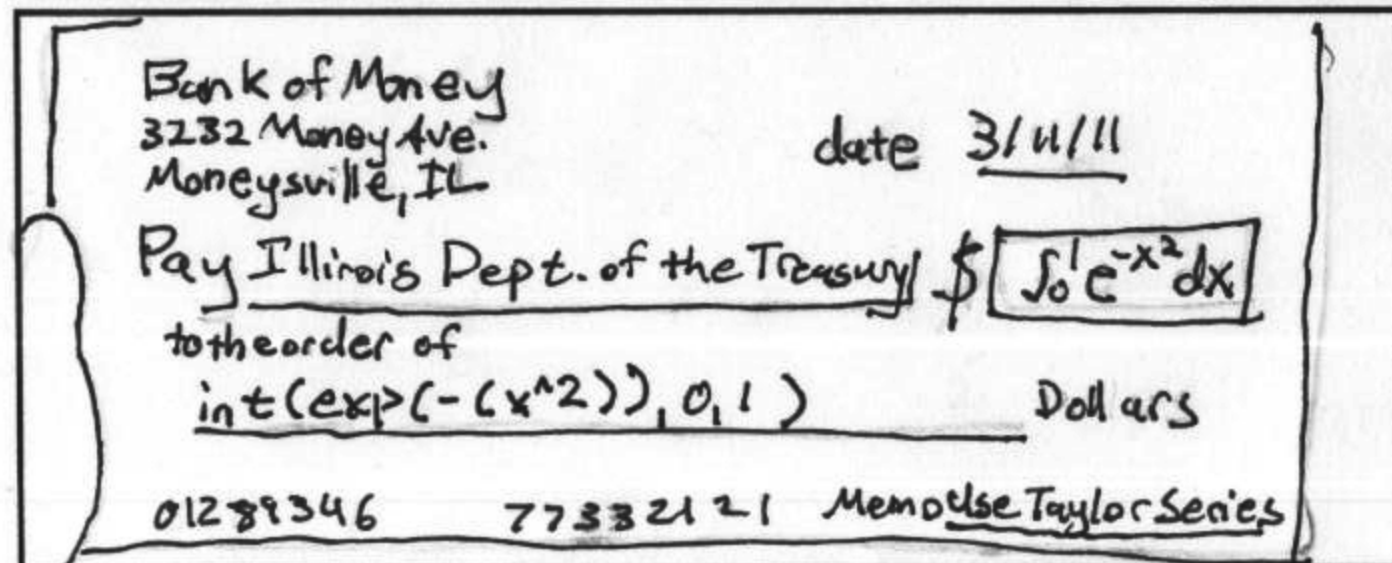 Bank of Money
3232 Money Ave.
Moneysville, IL
date 3/11/11
Pay Illinois Dept. of the Treasury $ ∫₀¹ e^-x² dx
to the order of
int(exp(-(x^2)), 0, 1) Dollars
01289346 77332121 Memo Use Taylor Series